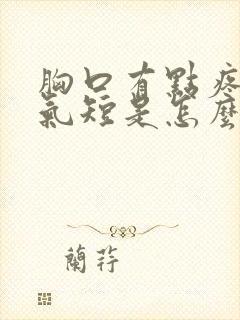 胸口有點疼
氣短是怎麼
蘭荇